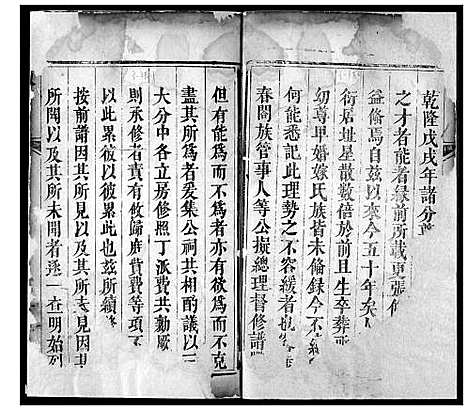 乾隆戊戌年諸分
之才者能者緣前所載更張
益脩焉自茲以來今五十年矣
衍居址星散數倍於前且生卒葬
幼尊卑婚嫁氏族皆未脩錄今不
何能悉記此理勢之不容緩者也
春闔族管事人等公擬總理督修譜
但有能爲而不爲者亦有欲爲而不克
盡其所爲者爰集公祠共相酌議以一
大分中各立房修照丁派費共勷厥
則承修者責有攸歸庶貲費等項不
以此累彼以彼累此也茲所續
按前譜因其所見以及其所未見因其
所聞以及其所未聞者逐一查明始列